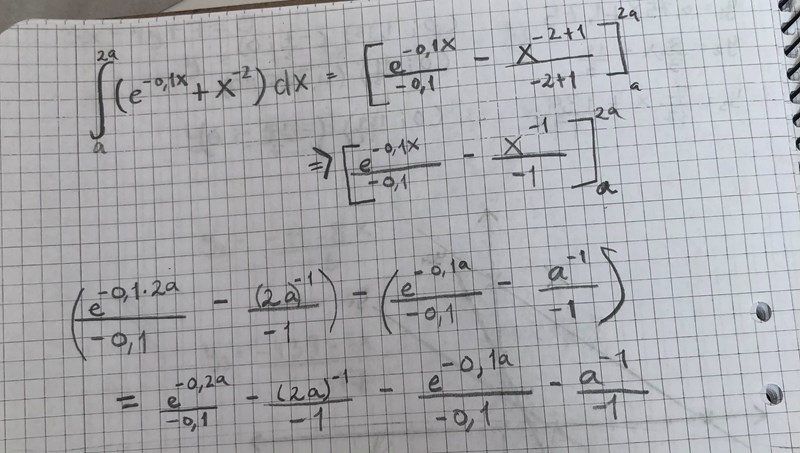 ∫_a^{2a} (e^{-0,1x} + x^{-2}) dx = [e^{-0,1x}/-0,1 - x^{-2+1}/-2+1]_a^{2a}
⇒ [e^{-0,1x}/-0,1 - x^{-1}/-1]_a^{2a}
(e^{-0,1·2a}/-0,1 - (2a)^{-1}/-1) - (e^{-0,1a}/-0,1 - a^{-1}/-1)
= e^{-0,2a}/-0,1 - (2a)^{-1}/-1 - e^{-0,1a}/-0,1 - a^{-1}/-1